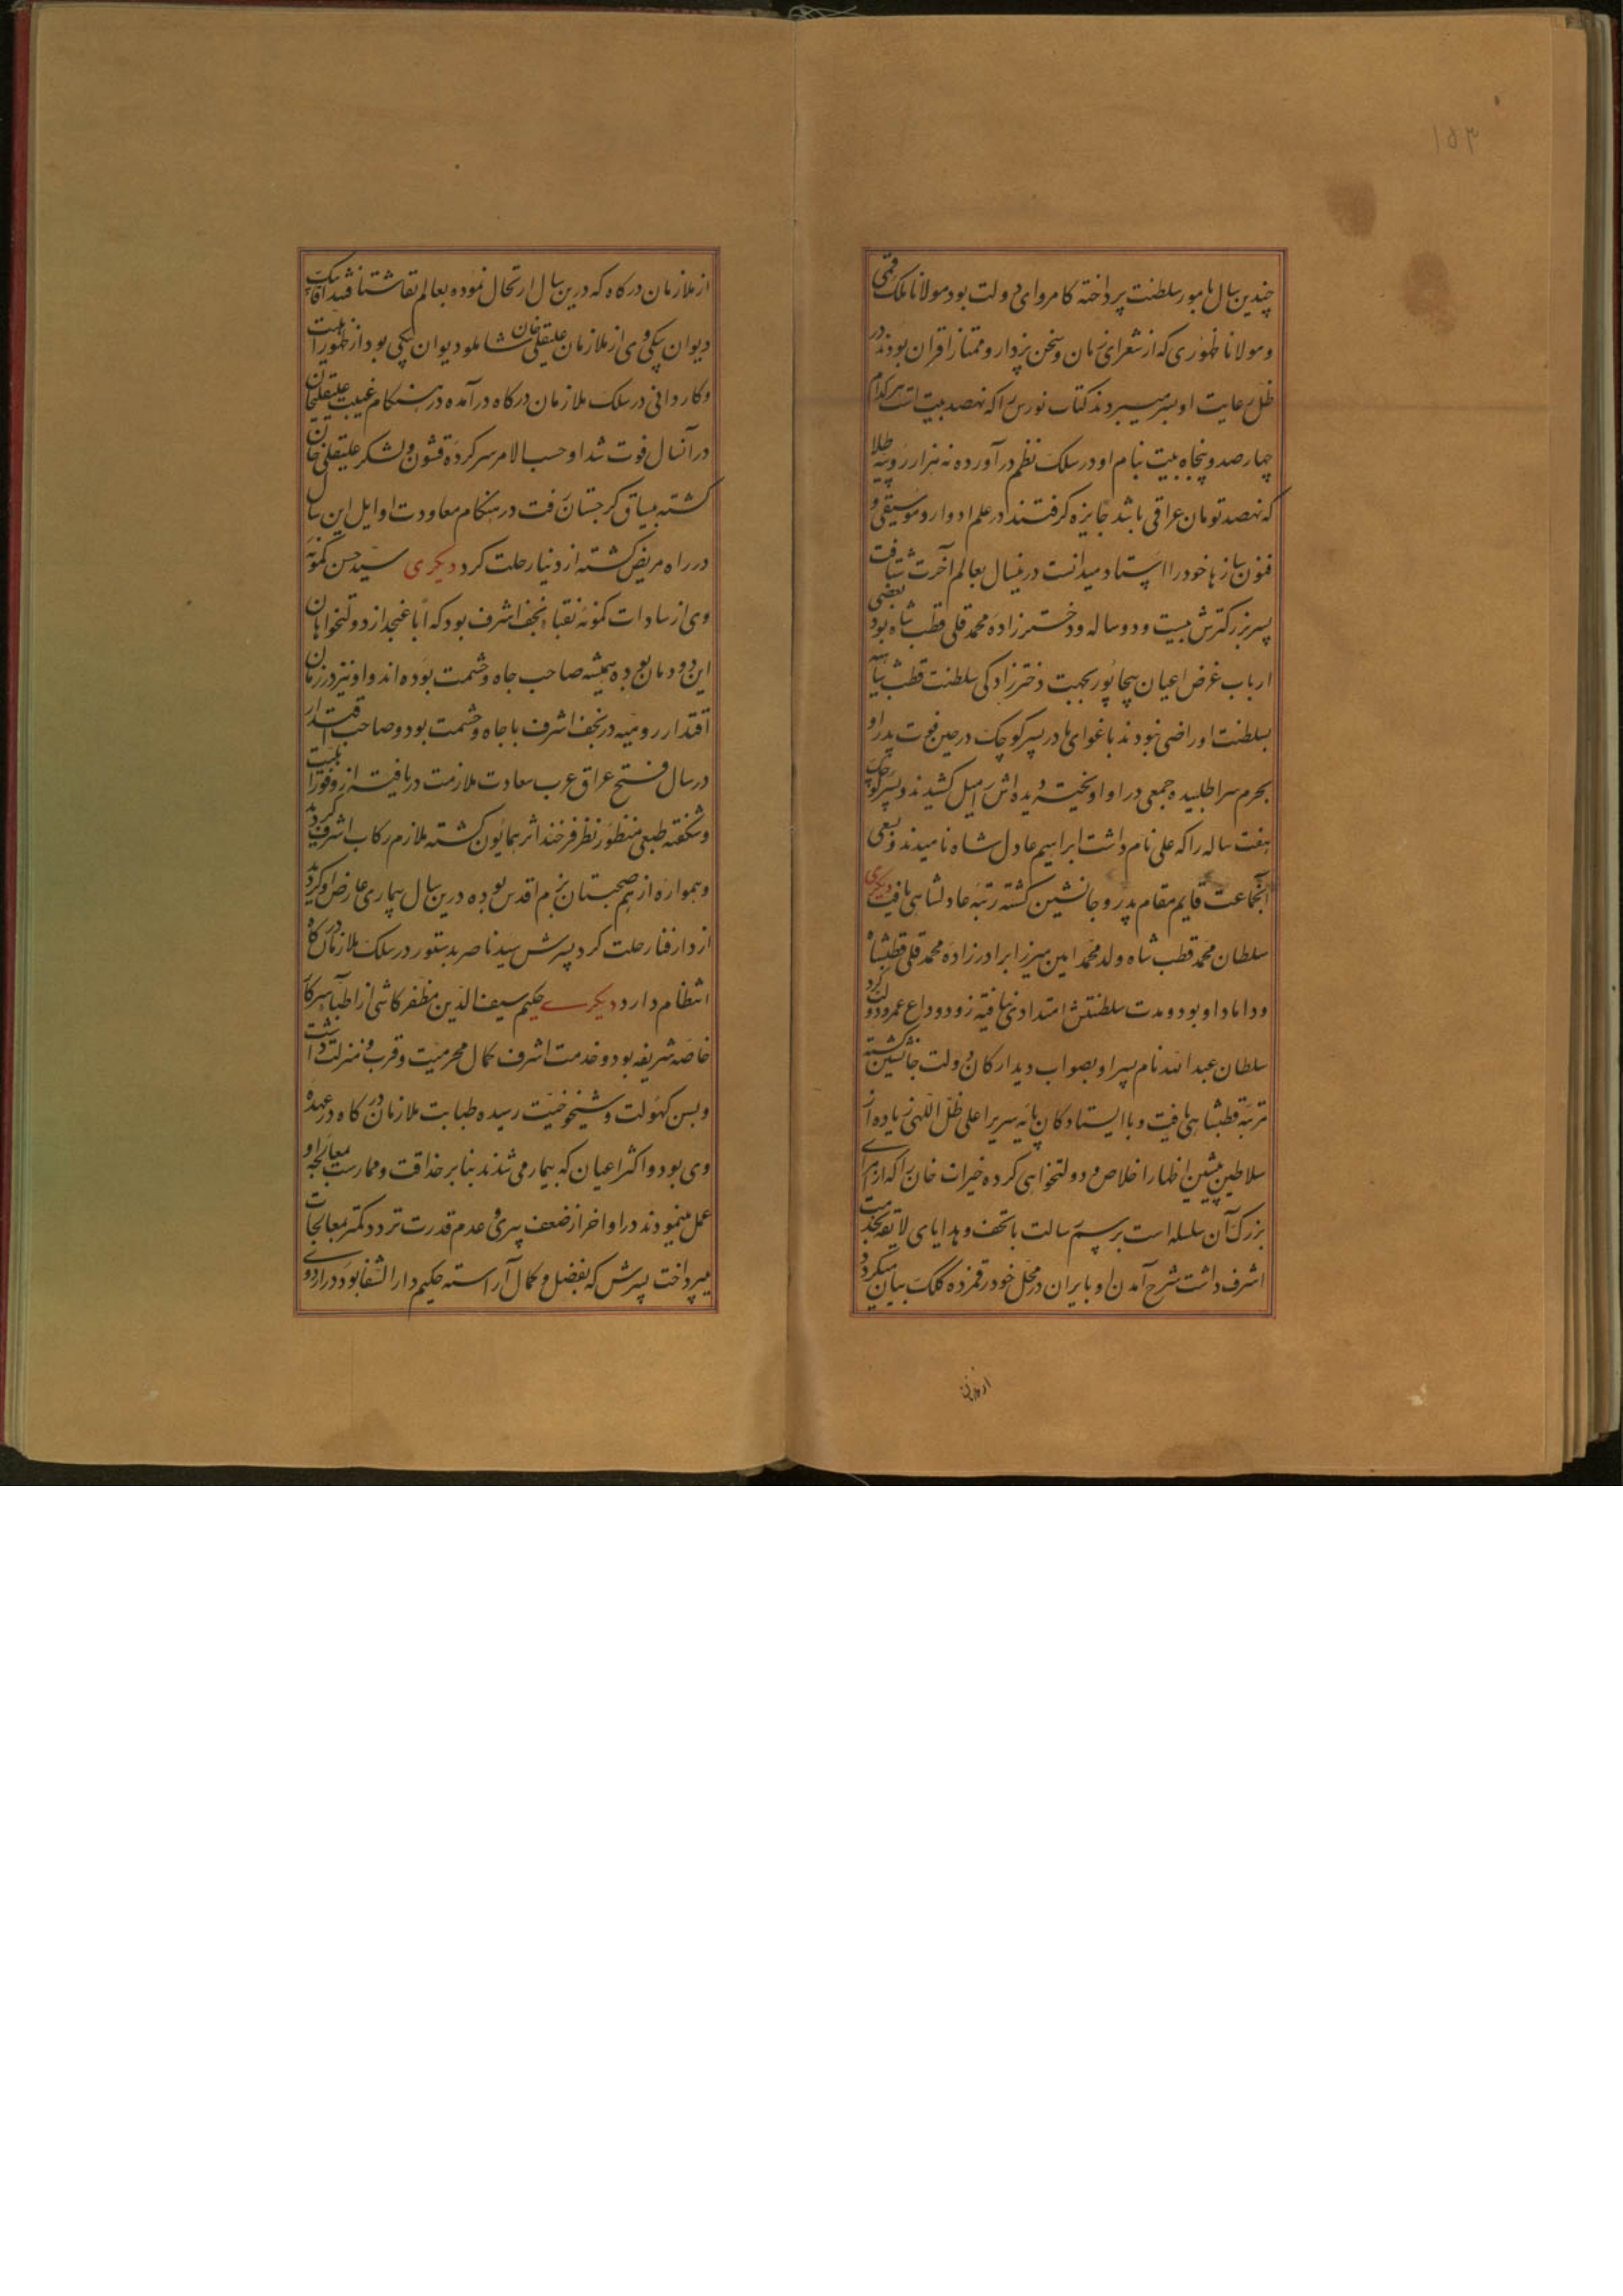 ۱۵۳
چندین سال بامور سلطنت پرداخته کامروای دولت بود مولانا ملک قمی
و مولانا ظهوری که از شعرای زمان و سخن پرداز و ممتاز اقران بودند در
ظل رعایت او بسر میبردند کتاب نورس را که نهصد بیت است هر کدام
چهارصد و پنجاه بیت بنام او در سلک نظم درآورده نه هزار روپیه طلا
که نهصد تومان عراقی باشد جایزه گرفتند در علم ادوار و موسیقی و
فنون سازها خود را استاد میدانست درینسال بعالم آخرت شتافت
پسر بزرگترش بیست و دو ساله و دخترزاده محمد قلی قطب شاه بود بعضی
ارباب غرض اعیان بیجاپور بجهت دخترزادگی سلطنت قطب شاهیه
بسلطنت او راضی نبودند باغوای مادر پسر کوچک در حین فوت پدر او
بحرم سرا طلبیده جمعی در او آویخته دیده اش را میل کشیدند و پسر کوچک
هفت ساله را که علی نام داشت ابراهیم عادل شاه نامیدند و بسعی
آنجماعت قایم مقام پدر و جانشین گشته رتبه عادلشاهی یافت دیگری
سلطان محمد قطب شاه ولد محمد امین میرزا برادرزاده محمد قلی قطبشاه
و داماد او بود و مدت سلطنتش امتدادی نیافته زود وداع عمر و دولت کرد
سلطان عبدالله نام پسر او بصواب دید ارکان دولت جانشین گشته
رتبه قطبشاهی یافت و با ایستادگان پایه سریر اعلی ظل اللهی زیاده از
سلاطین پیشین اظهار اخلاص و دولتخواهی کرده خیرات خان را که از امرای
بزرگ آن سلسله است برسم رسالت با تحف و هدایای لایقه بخدمت
اشرف داشت شرح آمدن او بایران در محل خود رقمزده کلک بیان میگردد
از ملازمان
از ملازمان درگاه که درین سال ارتحال نموده بعالم بقا شتافتند آقا بیک
دیوان بیگی وی از ملازمان علیقلی خان شاملو دیوان بیگی بود از ظهور اهلیت
و کاردانی در سلک ملازمان درگاه درآمده در هنگام غیبت علیقلیخان
در آنسال فوت شد او حسب الامر سرکرده قشون و لشکر علیقلی خان
گشته بیساق گرجستان رفت در هنگام معاودت اوایل این سال
در راه مریض گشته از دنیا رحلت کرد دیگری سید حسن کمونه
وی از سادات کمونه نقباء نجف اشرف بود که اباً عنجد از دولتخواهان
این دودمان بوده همیشه صاحب جاه و حشمت بوده اند و او نیز در زمان
اقتدار رومیه در نجف اشرف با جاه و حشمت بود و صاحب اقتدار
در سال فتح عراق عرب سعادت ملازمت دریافته از وفور اهلیت
و شکفته طبعی منظور نظر فرخنده اثر همایون گشته ملازم رکاب اشرف گردید
و همواره از هم صحبتان بزم اقدس بوده درین سال بیماری عارض او گردید
از دار فنا رحلت کرد پسرش سید ناصر بدستور در سلک ملازمان درگاه
انتظام دارد دیگری حکیم سیف الدین مظفر کاشی از اطباء سرکار
خاصه شریفه بود و خدمت اشرف کمال محرمیت و قرب و منزلت داشت
و بسن کهولت و شیخوخیت رسیده طبابت ملازمان درگاه در عهده
وی بود و اکثر اعیان که بیمار می شدند بنابر حذاقت و ممارست معالجه او
عمل مینمودند در اواخر از ضعف پیری و عدم قدرت تردد کمتر بمعالجات
میپرداخت پسرش که بفضل و کمال آراسته حکیم دار الشفا بود در اردوی